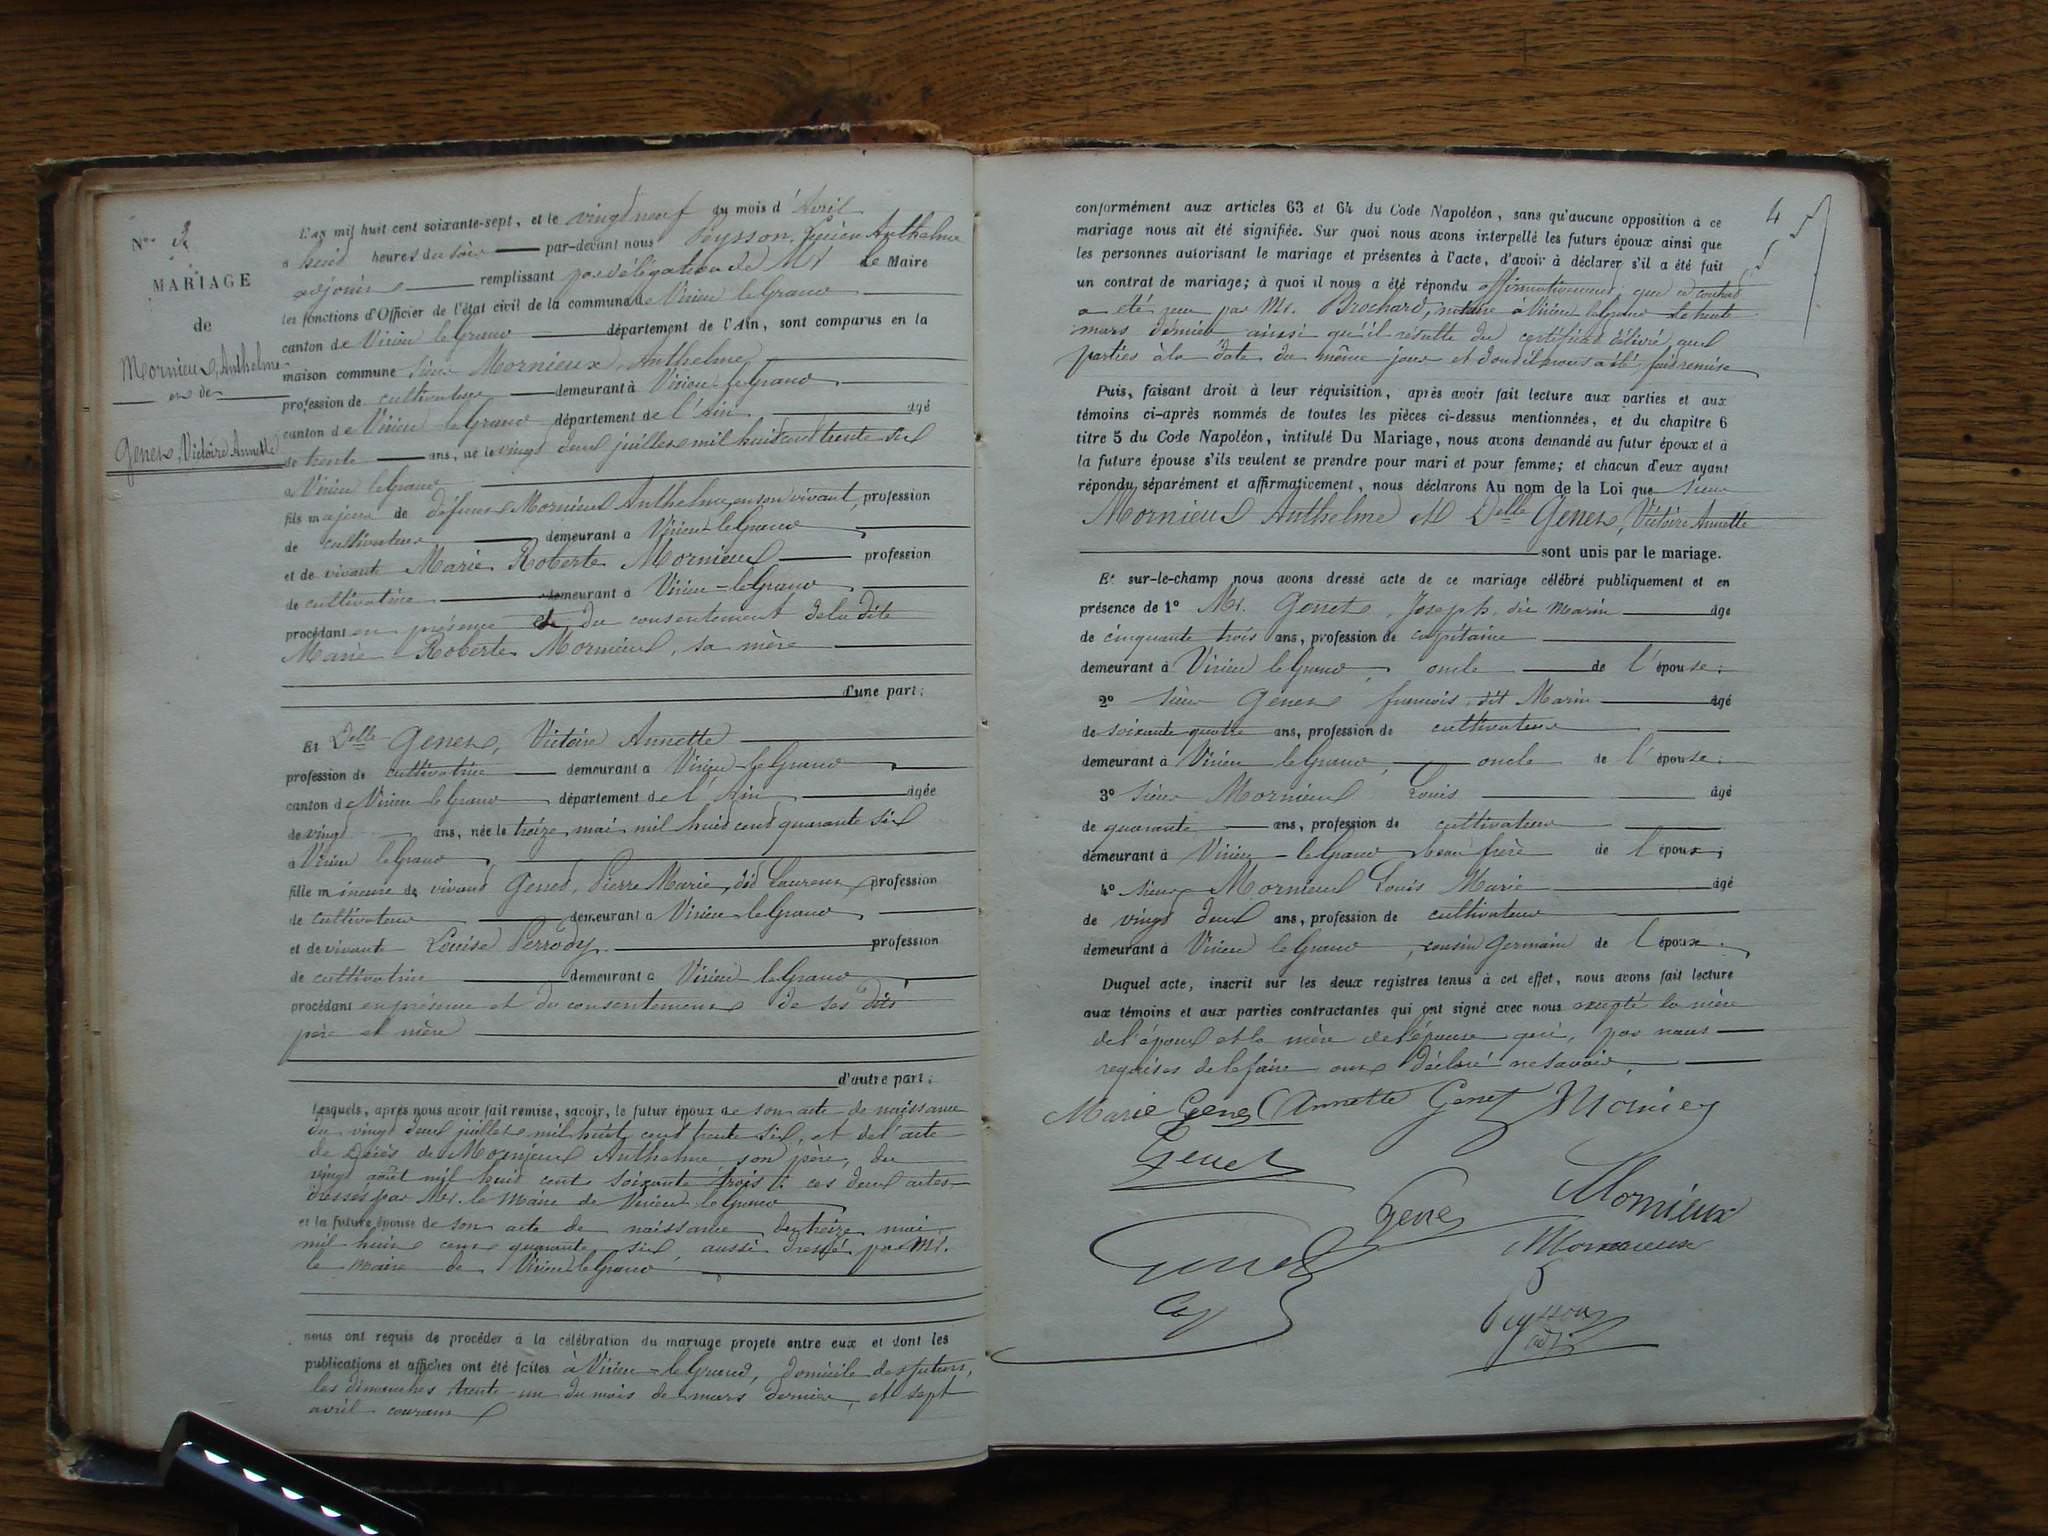 N° 3
MARIAGE
de
Mornieux, Anthelme
et de
Genet, Victoire Annette
L'an mil huit cent soixante-sept, et le vingt neuf du mois d'Avril
à huit heures du soir par-devant nous Peysson, Anthelme
adjoint remplissant par délégation de Mr le Maire
les fonctions d'Officier de l'état civil de la commune de Virieu le Grand
canton de Virieu le Grand département de l'Ain, sont comparus en la
maison commune sieur Mornieux, Anthelme,
profession de cultivateur demeurant à Virieu le Grand
canton de Virieu le Grand département de l'Ain âgé
de trente ans, né le vingt deux juillet mil huit cent trente six
à Virieu le Grand
fils majeur de défunt Mornieux Anthelme, en son vivant, profession
de cultivateur demeurant à Virieu le Grand
et de vivante Marie Roberte Mornieux profession
de cultivatrice demeurant à Virieu-le Grand
procédant en présence et du consentement de la dite
Marie Roberte Mornieux, sa mère
d'une part;
Et Delle Genet, Victoire Annette
profession de cultivatrice demeurant à Virieu-le Grand
canton de Virieu le Grand département de l'Ain âgée
de vingt ans, née le treize mai mil huit cent quarante six
à Virieu le Grand
fille mineure de vivant Genet, Pierre Marie, dit Laurent, profession
de cultivateur demeurant à Virieu le Grand
et de vivante Louise Perrody profession
de cultivatrice demeurant à Virieu le Grand
procédant en présence et du consentement de ses dits
père et mère
d'autre part;
Lesquels, après nous avoir fait remise, savoir, le futur époux de son acte de naissance
du vingt deux juillet mil huit cent trente six, et de l'acte
de décès de Mornieux Anthelme son père, du
vingt août mil huit cent soixante trois; ces deux actes
dressés par Mr. le Maire de Virieu le Grand
et la future épouse de son acte de naissance du treize mai
mil huit cent quarante six, aussi dressé par Mr.
le maire de Virieu le Grand
nous ont requis de procéder à la célébration du mariage projeté entre eux et dont les
publications et affiches ont été faites à Virieu-le Grand, domicile des futurs,
les dimanches trente-un du mois de mars dernier, et sept
avril courant
4
conformément aux articles 63 et 64 du Code Napoléon, sans qu'aucune opposition à ce
mariage nous ait été signifiée. Sur quoi nous avons interpellé les futurs époux ainsi que
les personnes autorisant le mariage et présentes à l'acte, d'avoir à déclarer s'il a été fait
un contrat de mariage; à quoi il nous a été répondu affirmativement; que ce contrat
a été reçu par Mr. Brochard, notaire à Virieu le Grand le trente
mars dernier, ainsi qu'il résulte du certificat délivré aux
parties à la date du même jour et dont il nous a été fait remise
Puis, faisant droit à leur réquisition, après avoir fait lecture aux parties et aux
témoins ci-après nommés de toutes les pièces ci-dessus mentionnées, et du chapitre 6
titre 5 du Code Napoléon, intitulé Du Mariage, nous avons demandé au futur époux et à
la future épouse s'ils veulent se prendre pour mari et pour femme; et chacun d'eux ayant
répondu séparément et affirmativement, nous déclarons Au nom de la Loi que sieur
Mornieux Anthelme et Delle Genet, Victoire Annette
sont unis par le mariage.
Et sur-le-champ nous avons dressé acte de ce mariage célébré publiquement et en
présence de 1° Mr. Genet, Joseph, dit Marin âgé
de cinquante trois ans, profession de capitaine
demeurant à Virieu le Grand, oncle de l'épouse;
2° sieur Genet françois, dit Marin âgé
de soixante quatre ans, profession de cultivateur
demeurant à Virieu le Grand, oncle de l'épouse;
3° sieur Mornieux Louis âgé
de quarante ans, profession de cultivateur
demeurant à Virieu-le Grand beau frère de l'époux;
4° sieur Mornieux Louis Marie âgé
de vingt deux ans, profession de cultivateur
demeurant à Virieu le Grand, cousin germain de l'époux.
Duquel acte, inscrit sur les deux registres tenus à cet effet, nous avons fait lecture
aux témoins et aux parties contractantes qui ont signé avec nous excepté la mère
de l'époux et la mère de l'épouse qui, par nous
requises de le faire ont déclaré ne savoir.
Marie Genet Annette Genet Mornieu
Genet
Genet Mornieux
Genet Mornieux
Cap
Peysson
adj.